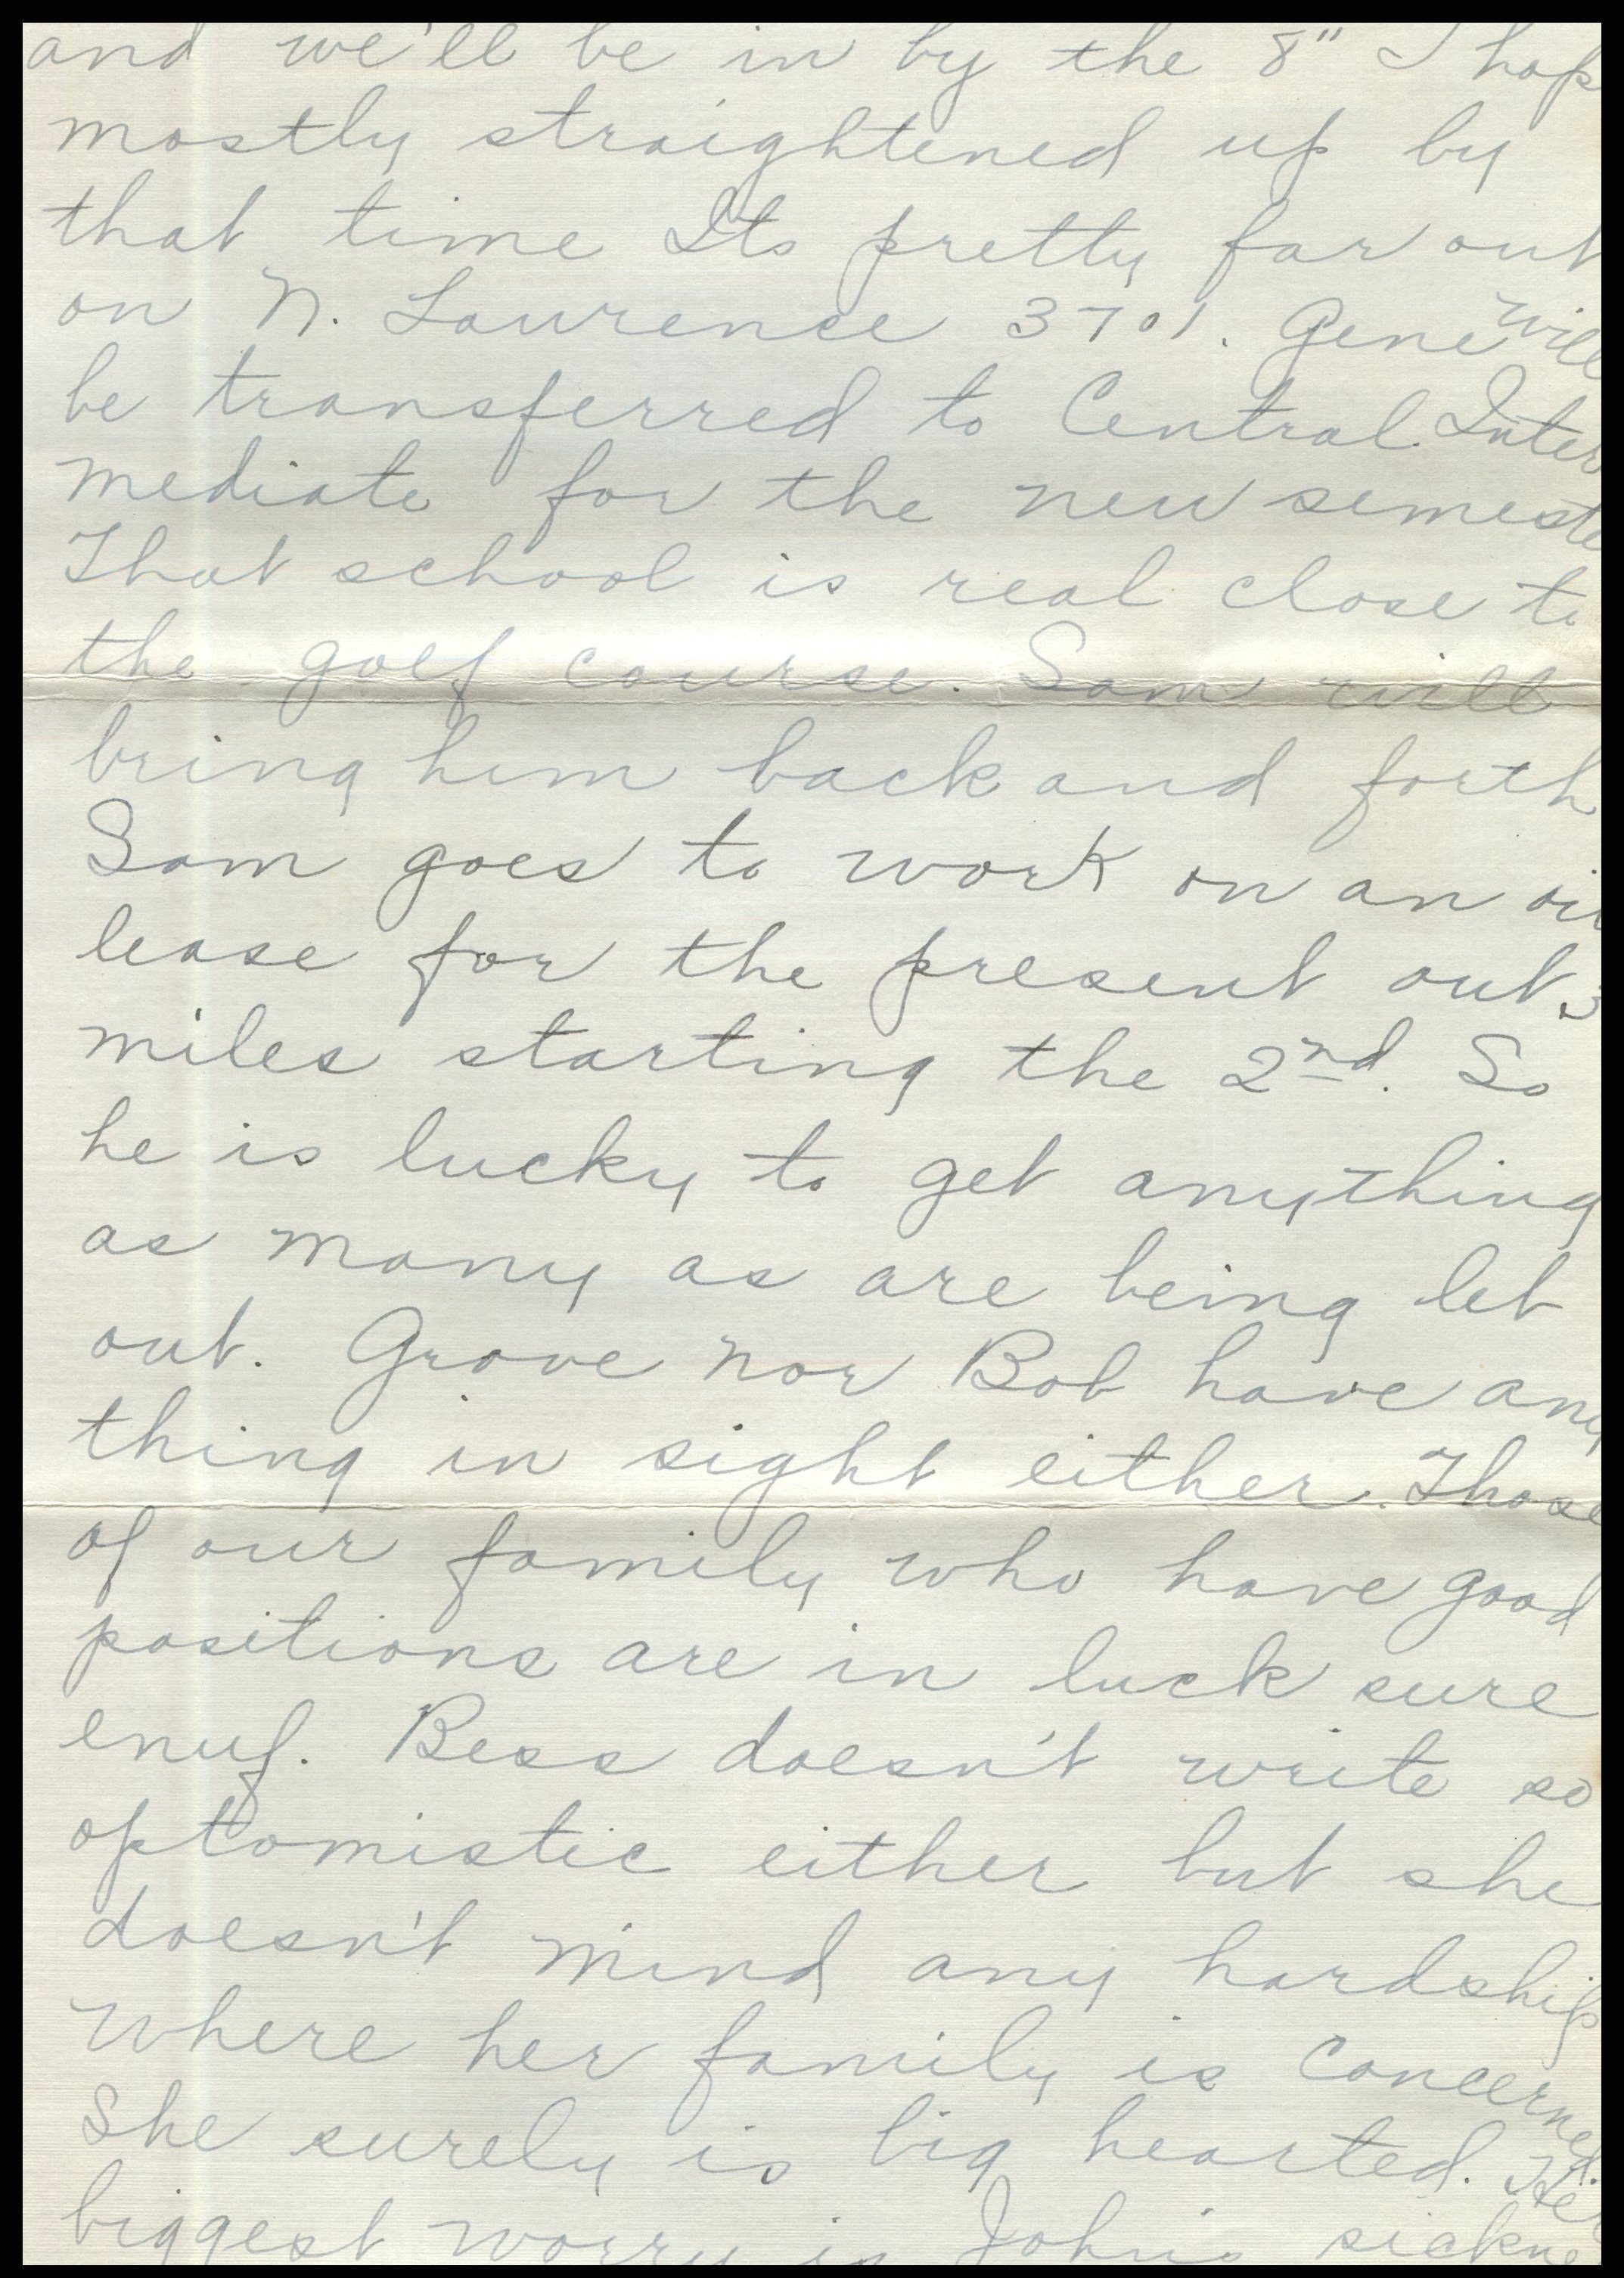 and we'll be in by the 8" I hop
mostly straightened up by
that time Its pretty far out
on N. Lawrence 3701. Gene will
be transferred to Central Inter
mediate for the new semeste
That school is real close to
the golf course. Sam will
bring him back and forth
Sam goes to work on an oil
lease for the present out 3
miles starting the 2nd. So
he is lucky to get anything
as many as are being let
out. Grove nor Bob have any
thing in sight either. Those
of our family who have good
positions are in luck sure
enuf. Bess doesn't write so
optomistic either but she
doesn't mind any hardship
where her family is concerned.
She surely is big hearted. Her
biggest worry is John's sickne